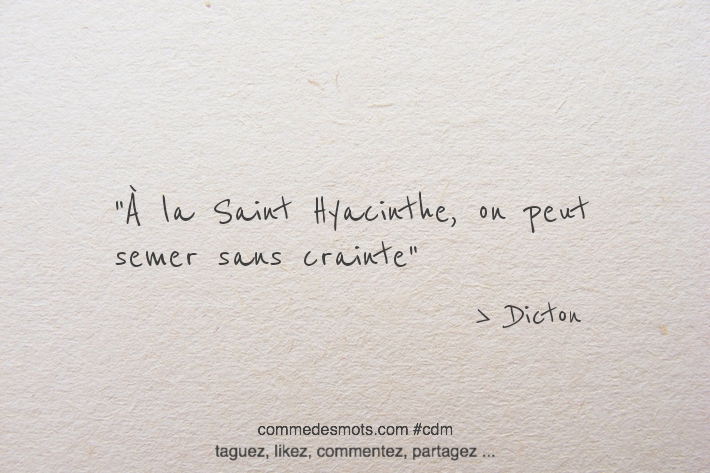 "À la Saint Hyacinthe, on peut
semer sans crainte"
> Dicton
commedesmots.com #cdm
taguez, likez, commentez, partagez ...